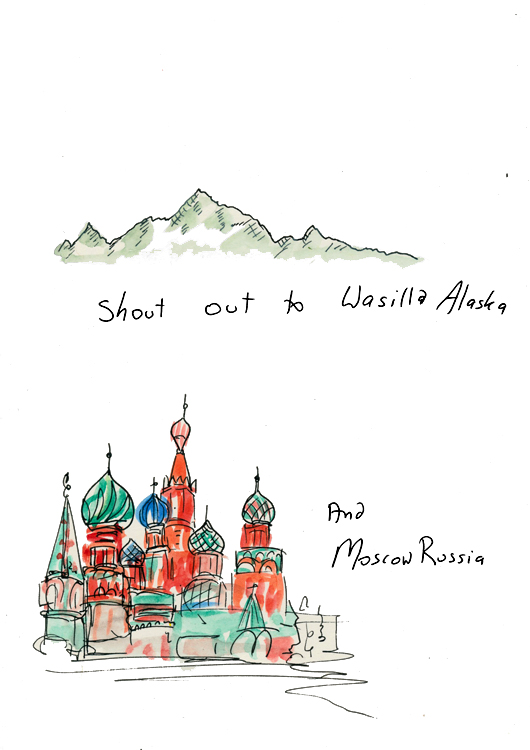 Shout out to Wasilla Alaska
And
Moscow Russia